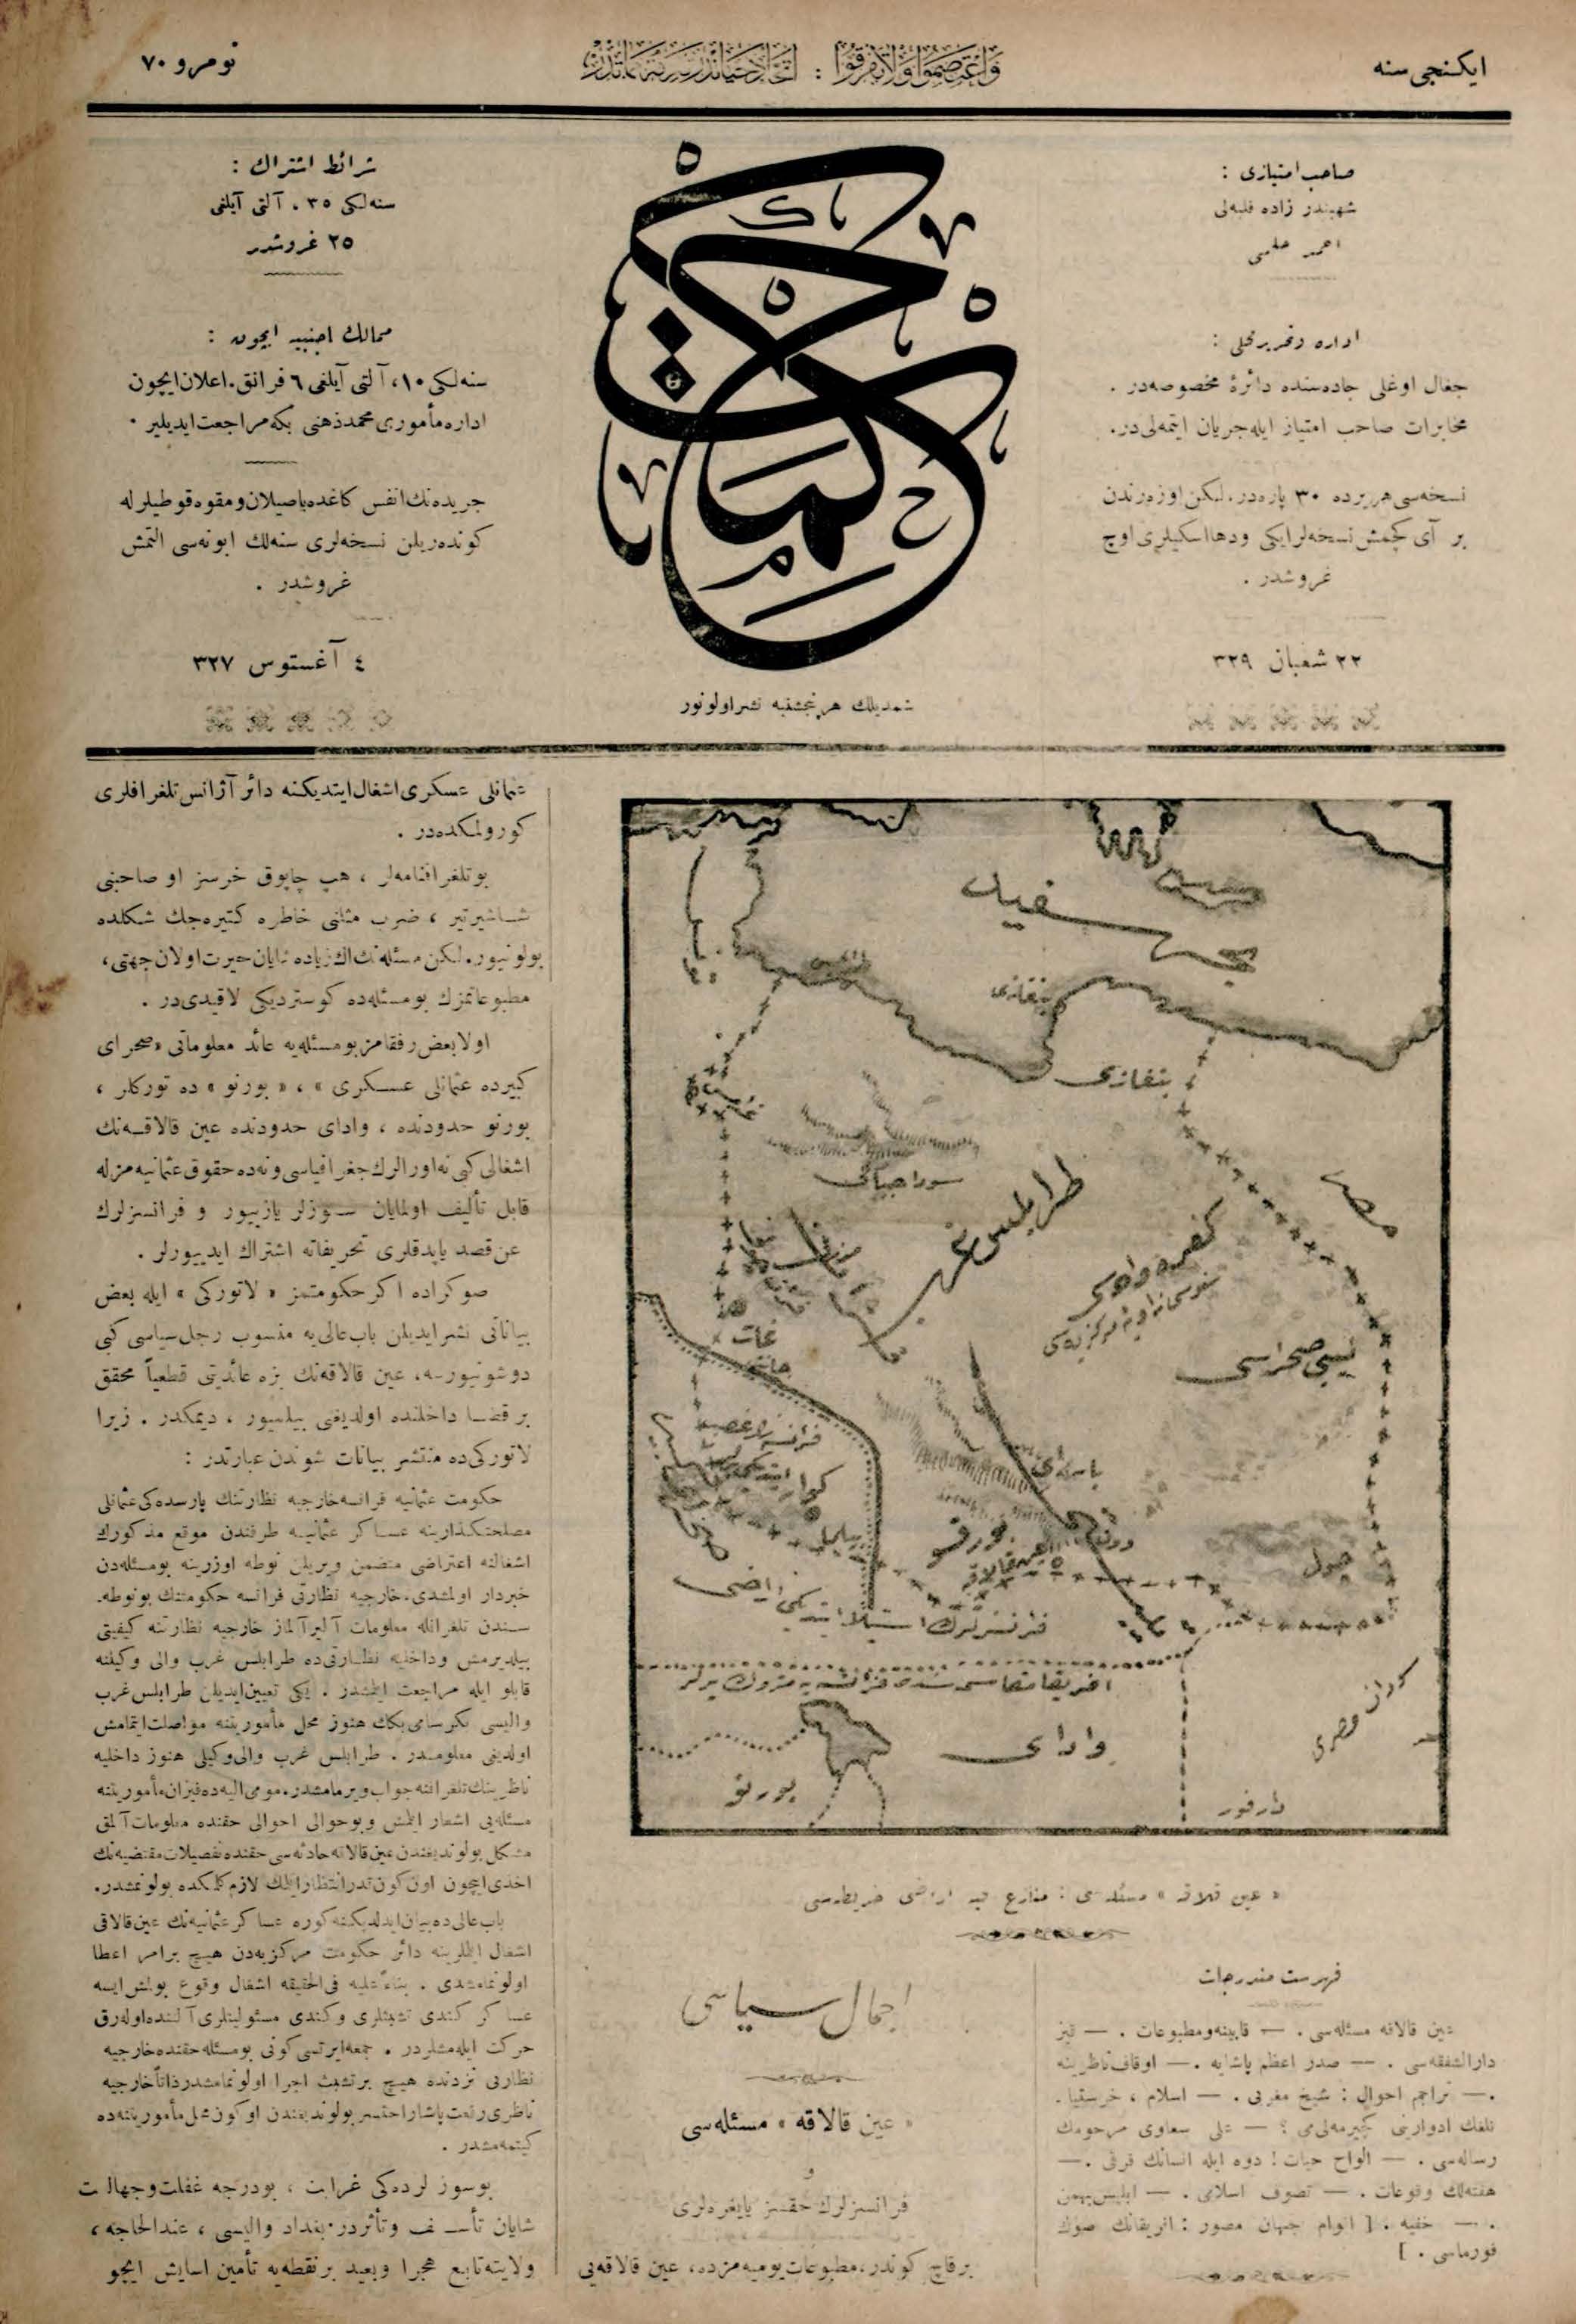 ایكنجی سنه
واعتصموا ولا تفرقوا :
نومرو ۷۰
صاحب امتیازی :
شهبندر زاده فلبه‌لی
احمد حلمی
اداره وتحریر محلی :
جغال اوغلی جاده‌سنده دائرۀ مخصوصه‌در .
مخابرات صاحب امتیاز ایله جریان ایتمه‌لی‌در.
نسخه‌سی هر یرده ۳۰ پاره‌در. لكن اوزه‌رندن
بر آی كچمش نسخه‌لر ایكی ودها اسكیلری اوچ
غروشدر .
۲۲ شعبان ۳۲۹
حكمت
شمدیلك هر پنجشنبه نشر اولونور
شرائط اشتراك :
سنه‌لكی ۳۵ ، آلتی آیلغی
۲۵ غروشدر
ممالك اجنبیه ایچون :
سنه‌لكی ۱۰، آلتی آیلغی ۶ فرانق. اعلان ایچون
اداره مأموری محمد ذهنی بكه مراجعت ایدیلیر .
جریده‌نك انفس كاغده باصیلان ومقوه قوطیلرله
كونده‌ریلن نسخه‌لری سنه‌لك ابونه‌سی التمش
غروشدر .
٤ آغستوس ۳۲۷
بحر سفید
بنغازی
بنغازی
سودا جبالی
طرابلس غرب
مصر
كفره واحه‌سی
لیبی صحراسی
غات
جانت
بیلما
چول
عین قالاقه
فرانسزلرك استیلا ایتدیكی اراضی
وادای
بورنو
دارفور
« عین قلاقه » مسئله‌سی : منازع فیه اراضی خریطه‌سی
فهرست مندرجات
عین قالاقه مسئله‌سی . — قابینه ومطبوعات . — قیز
دارالشفقه‌سی . — صدر اعظم پاشایه . — اوقاف ناظرینه
. — تراجم احوال : شیخ مغربی . — اسلام ، خرستیا.
نلغك ادوارینی كچیرمه‌لی‌می ؟ — علی سعاوی مرحومك
رساله‌سی . — الواح حیات : دوه ایله انسانك فرقی . —
هفته‌لك وقوعات . — تصوف اسلامی . — ابلیس بهمن
. — خفیه . [ اقوام جهان مصور : افریقانك صوك
فورماسی . ]
اجمال سیاسی
« عین قالاقه » مسئله‌سی
و
فرانسزلرك حقسز یایغره‌لری
بر قاچ كوندر، مطبوعات یومیه مزده، عین قالاقه‌یی
عثمانلی عسكری اشغال ایتدیكنه دائر آژانس تلغرافلری
كورولمكده‌در .
بو تلغرافنامه‌لر ، هپ چابوق خرسز او صاحبنی
شاشیرتیر ، ضرب مثلنی خاطره كتیره‌جك شكلده
بولونیور. لكن مسئله‌نك اك زیاده شایان حیرت اولان جهتی،
مطبوعاتمزك بو مسئله‌ده كوستردیكی لاقیدی‌در .
اولا بعض رفقامز بو مسئله‌یه عائد معلوماتی «صحرای
كبیرده عثمانلی عسكری » ، « بورنو » ده توركلر ،
بورنو حدودنده ، وادای حدودنده عین قالاقه‌نك
اشغالی كبی نه اورالرك جغرافیاسی ونه‌ده حقوق عثمانیه مزله
قابل تألیف اولمایان سوزلر یازییور و فرانسزلرك
عن قصد یاپدقلری تحریفاته اشتراك ایدییورلر .
صوكراده اكر حكومتمز « لاتوركی » ایله بعض
بیاناتی نشر ایدیلن باب عالی‌یه منسوب رجل سیاسی كبی
دوشونیورسه، عین قالاقه‌نك بزه عائدیتی قطعیاً محقق
بر قضا داخلنده اولدیغنی بیلمیور ، دیمكدر . زیرا
لاتوركی‌ده منتشر بیانات شوندن عبارتدر :
حكومت عثمانیه فرانسه خارجیه نظارتنك پارسده‌كی عثمانلی
مصلحتكذارینه عساكر عثمانیه طرفندن موقع مذكورك
اشغالنه اعتراضی متضمن ویریلن نوطه اوزرینه بو مسئله‌دن
خبردار اولمشدی. خارجیه نظارتی فرانسه حكومتنك بو نوطه.
سندن تلغرافله معلومات آلیر آلماز خارجیه نظارتنه كیفیتی
بیلدیرمش وداخلیه نظارتی‌ده طرابلس غرب والی وكیلنه
قابلو ایله مراجعت ایتمشدر . یكی تعیین ایدیلن طرابلس غرب
والیسی بكر سامی بكك هنوز محل مأموریتنه مواصلت ایتمامش
اولدیغی معلومدر . طرابلس غرب والی وكیلی هنوز داخلیه
ناظرینك تلغرافنه جواب ویرمامشدر. مومی الیه‌ده فیزان مأموریتنه
مسئله‌یی اشعار ایتمش وبو حوالی احوالی حقنده معلومات آلمق
مشكل بولوندیغندن عین قالاقه حادثه‌سی حقنده تفصیلات مقتضیه‌نك
اخذی ایچون اون كون قدر انتظار ایتمك لازم كلمكده بولونمشدر.
باب عالی‌ده بیان ایدلدیكنه كوره عساكر عثمانیه‌نك عین قالاقی
اشغال ایتملرینه دائر حكومت مركزیه‌دن هیچ بر امر اعطا
اولونمامشدی . بناءً علیه فی الحقیقه اشغال وقوع بولمش ایسه
عساكر كندی تشبثلری وكندی مسئولیتلری آلتنده اوله‌رق
حركت ایله‌مشلردر . جمعه ایرتسی كونی بو مسئله حقنده خارجیه
نظارتی نزدنده هیچ بر تشبث اجرا اولونمامشدر ذاتاً خارجیه
ناظری رفعت پاشا راحتسز بولوندیغندن او كون محل مأموریتنه‌ده
كیتمه‌مشدر .
بو سوزلرده‌كی غرابت ، بو درجه غفلت وجهالت
شایان تأسف وتأثردر. بغداد والیسی ، عندالحاجه ،
ولایته تابع هجرا وبعید بر نقطه‌یه تأمین اسایش ایچو